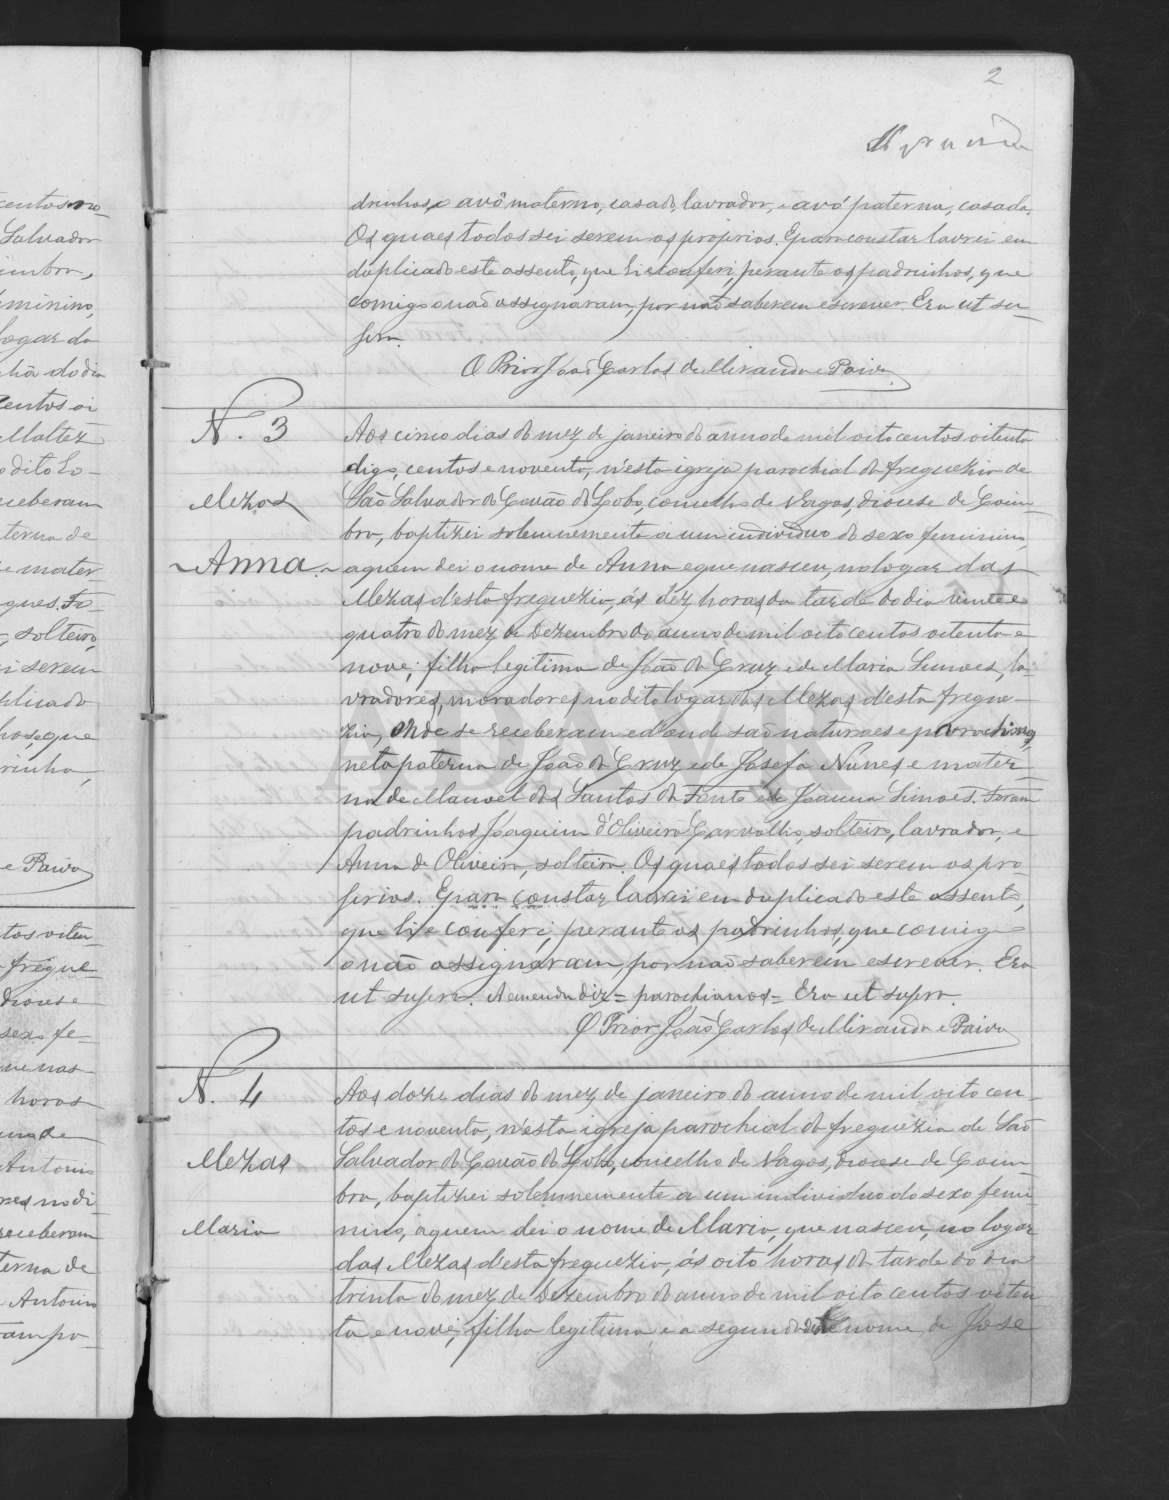 2
Miranda
drinhos, o avô materno, casado, lavrador, e avó paterna, casada.
Os quaes todos sei serem os proprios. E para constar lavrei em
duplicado este assento, que li e conferi, perante os padrinhos, que
comigo o não assignaram, por não saberem escrever. Era ut su-
pra.
O Prior João Carlos de Miranda e Paiva
N. 3
Mezas
Anna
Aos cinco dias do mez de janeiro do anno de mil oito centos oitenta
digo, centos e noventa, n'esta igreja parochial da freguezia de
São Salvador do Covão do Lobo, concelho de Vagos, diocese de Coim-
bra, baptizei solemnemente a um individuo do sexo feminino,
a quem dei o nome de Anna e que nasceu, no logar das
Mezas d'esta freguezia, ás dez horas da tarde do dia vinte e
quatro do mez de Dezembro do anno de mil oito centos oitenta e
nove; filha legitima de João da Cruz e de Maria Simoes, la-
vradores, moradores no dito logar das Mezas d'esta fregue-
zia, onde se receberam e d'onde são naturaes e parochianos,
neta paterna de João da Cruz e de Josefa Nunes e mater-
na de Manoel dos Santos da Fonte e de Joanna Simoes. Foram
padrinhos Joaquim d'Oliveira Carvalho, solteiro, lavrador, e
Anna de Oliveira, solteira. Os quaes todos sei serem os pro-
prios. E para constar lavrei em duplicado este assento,
que li e conferi, perante os padrinhos, que comigo
o não assignaram, por não saberem escrever. Era
ut supra. A emenda diz = parochianos = Era ut supra.
O Prior João Carlos de Miranda e Paiva
N. 4
Mezas
Maria
Aos doze dias do mez de janeiro do anno de mil oito cen-
tos e noventa, n'esta igreja parochial da freguezia de São
Salvador do Covão do Lobo, concelho de Vagos, diocese de Coim-
bra, baptizei solemnemente a um individuo do sexo femi-
nino, a quem dei o nome de Maria, que nasceu, no logar
das Mezas d'esta freguezia, ás oito horas da tarde do dia
trinta do mez de Dezembro do anno de mil oito centos oiten-
ta e nove; filha legitima e a segunda d'este nome de José